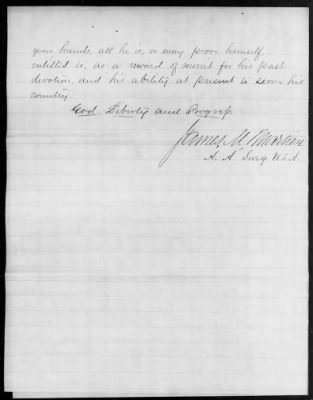 your hands all he is, or may prove himself,
entitled to, as a reward of merit for his past
devotion, and his ability at present to serve his
country.
God, Liberty and Progress.
James M.
A. A. Surg U.S.A.